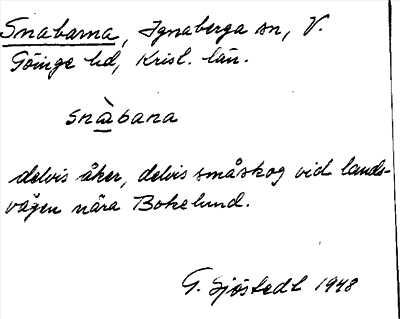 Snabarna, Ignaberga sn, V.
Göinge hd, Krist. län.
snàbana
delvis åker, delvis småskog vid lands-
vägen nära Bokelund.
G. Sjöstedt 1948